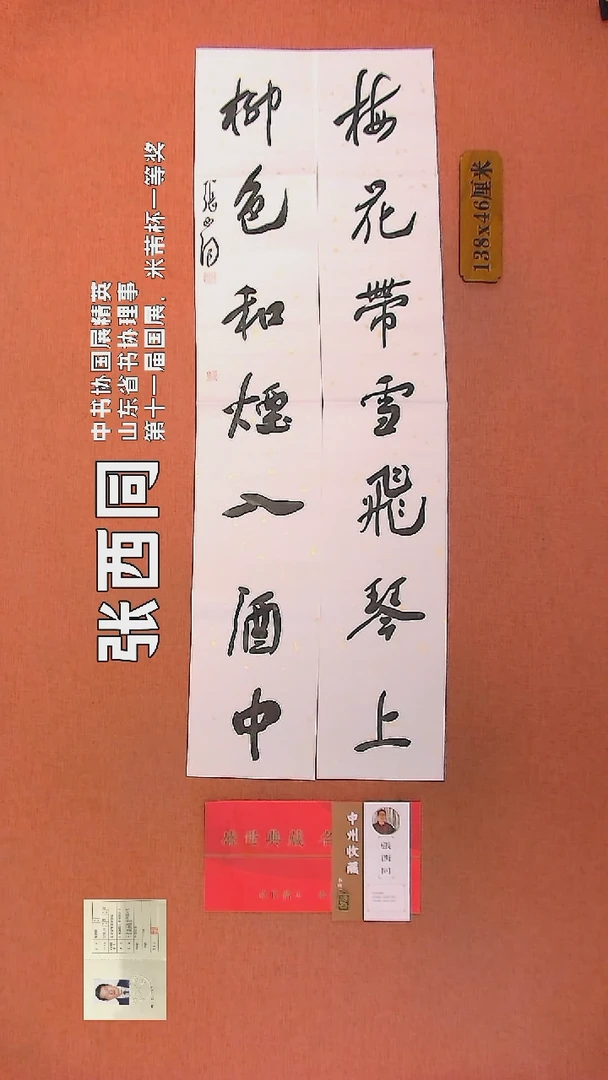 梅花帶雪飛琴上
柳色和煙入酒中
張西同
138x46厘米
张西同
中书协国展精英
山东省书协理事
第十一届国展、米芾杯一等奖
中州收藏
張西同